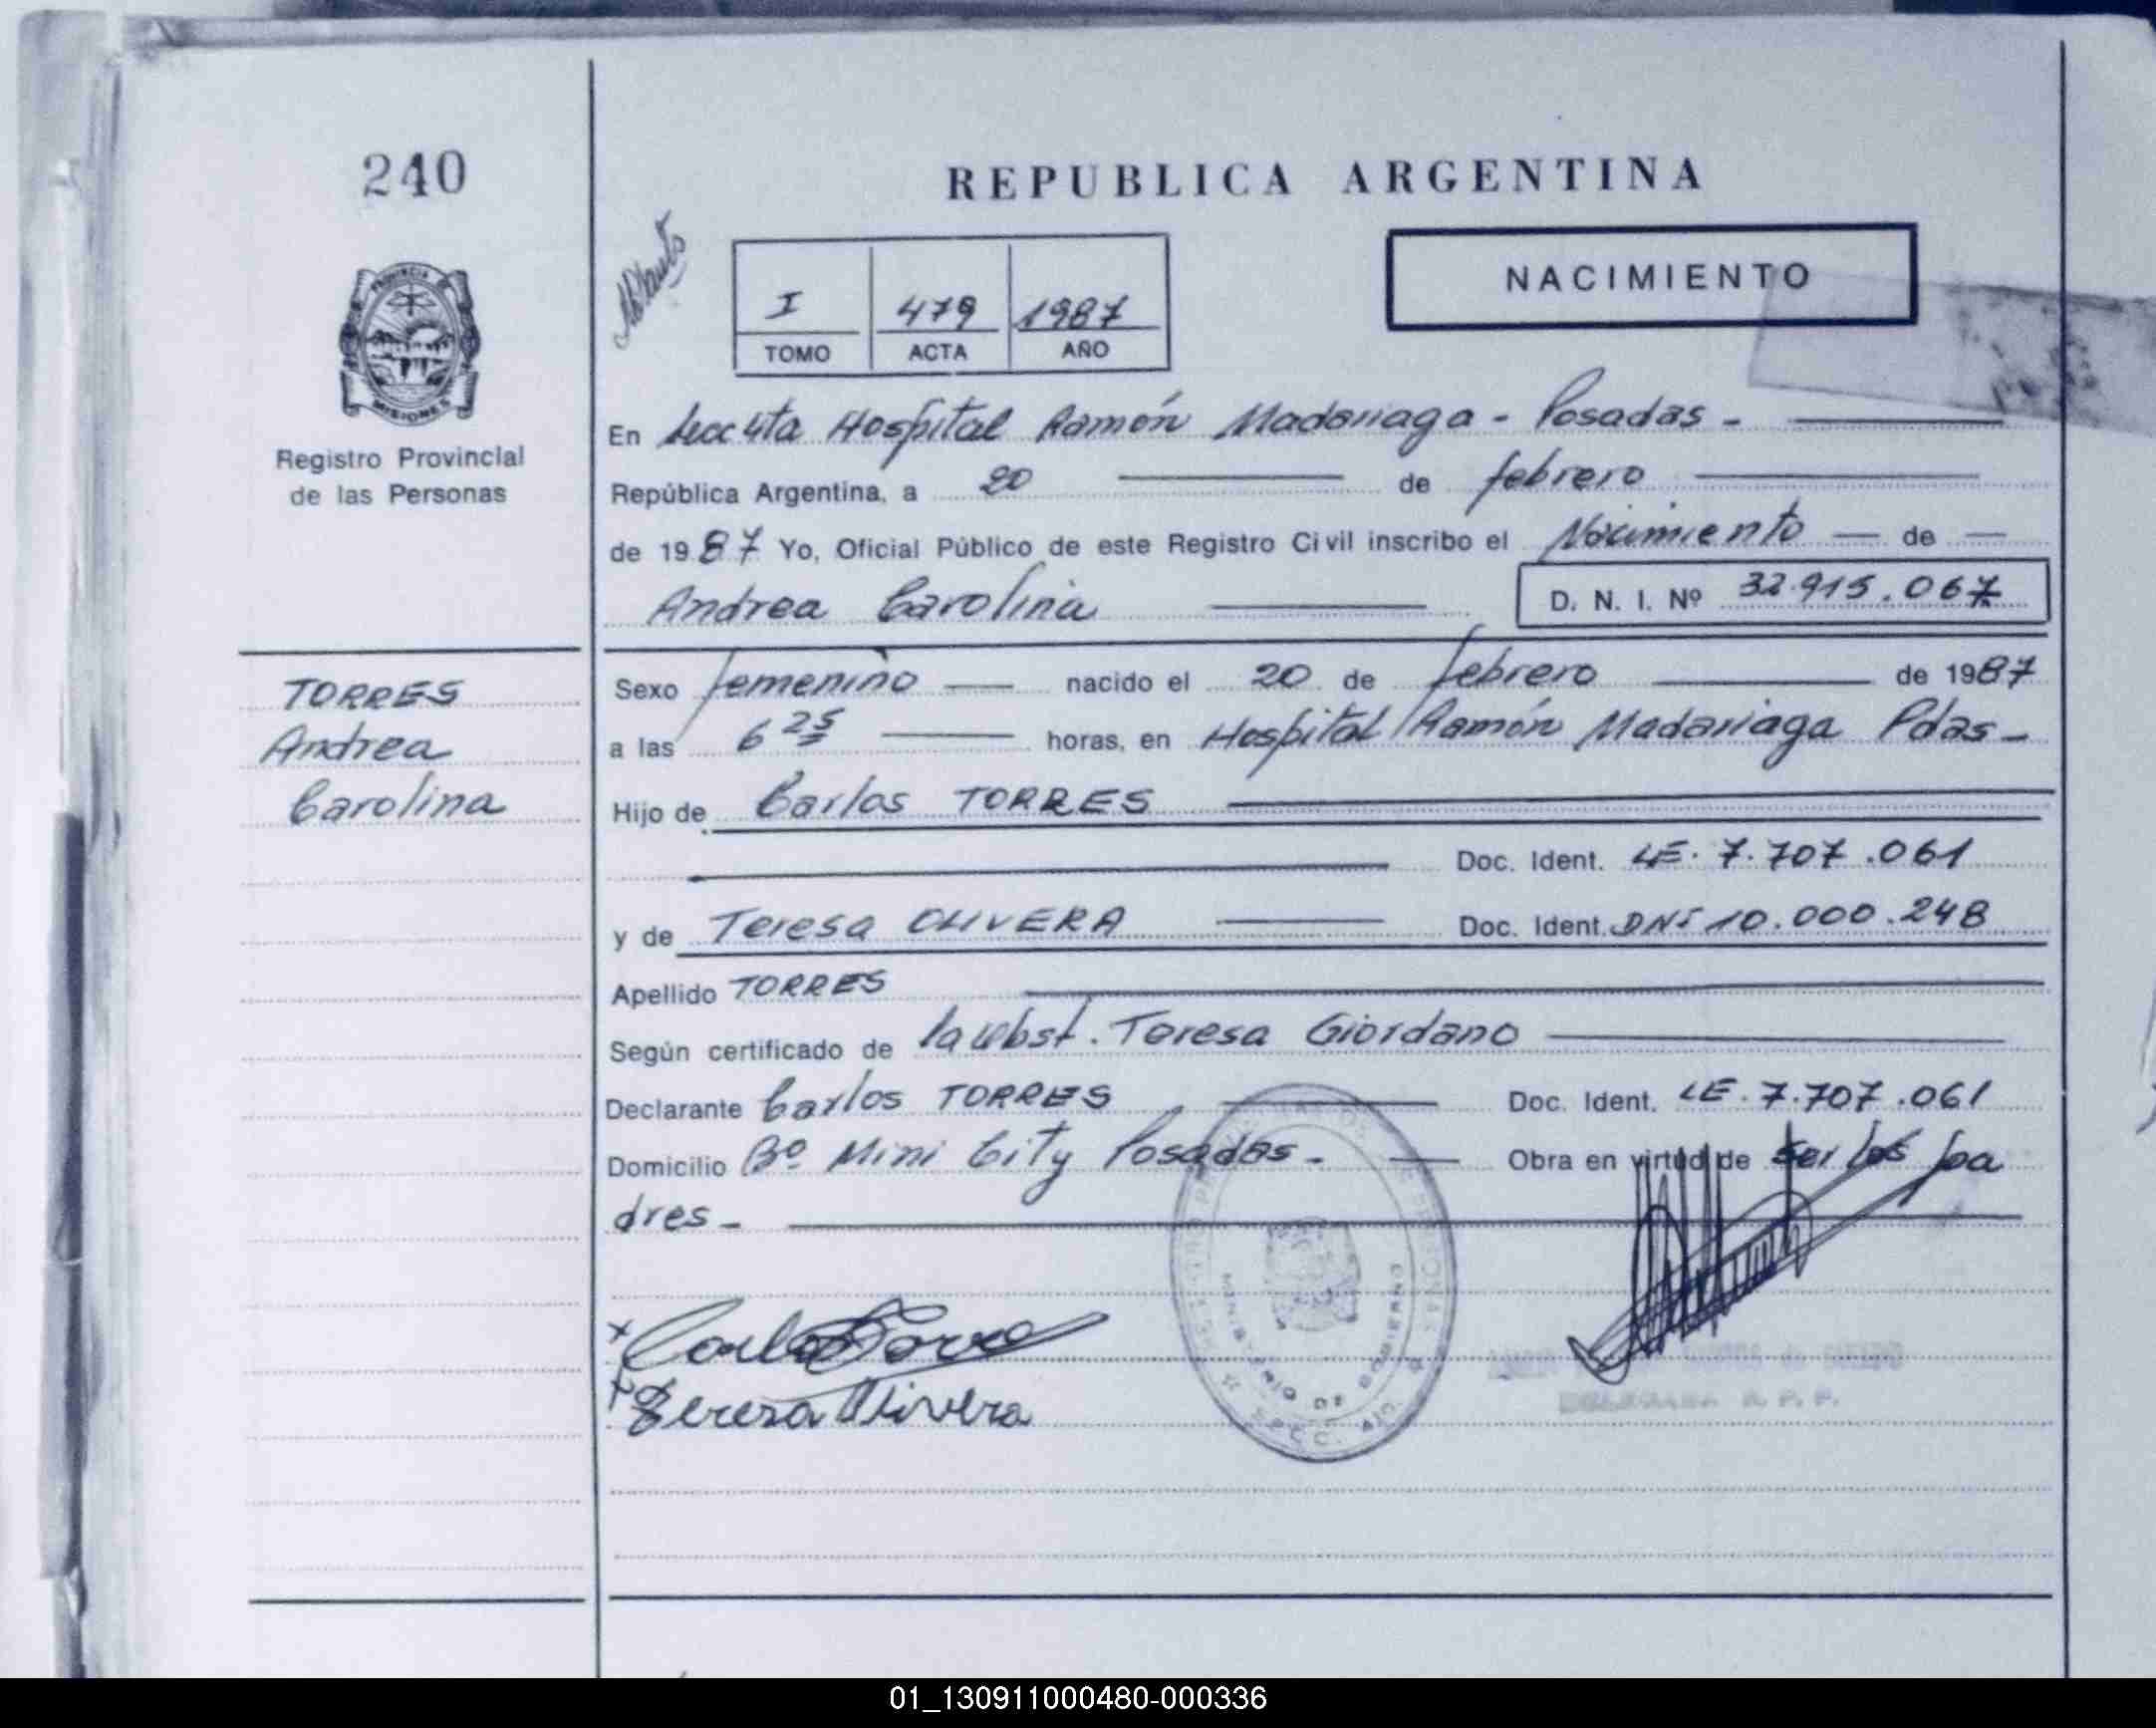 240
REPUBLICA ARGENTINA
PROVINCIA
MISIONES
Registro Provincial
de las Personas
NACIMIENTO
I 479 1987
TOMO ACTA AÑO
En Secc 4ta Hospital Ramón Madariaga - Posadas -
República Argentina, a 20 de febrero
de 1987 Yo, Oficial Público de este Registro Civil inscribo el Nacimiento de
Andrea Carolina D. N. I. Nº 32.915.067
TORRES
Andrea
Carolina
Sexo femenino nacido el 20 de febrero de 1987
a las 6 25 horas, en Hospital Ramón Madariaga Pdas -
Hijo de Carlos TORRES
Doc. Ident. LE. 7.707.061
y de Teresa OLIVERA Doc. Ident. DNI 10.000.248
Apellido TORRES
Según certificado de la Obst. Teresa Giordano
Declarante Carlos TORRES Doc. Ident. LE. 7.707.061
Domicilio Bº Mini City Posadas - Obra en virtud de ser los pa
dres -
MINISTERIO DE GOBIERNO
x Carlos Torre
x Teresa Olivera
R. P. P.
01_130911000480-000336